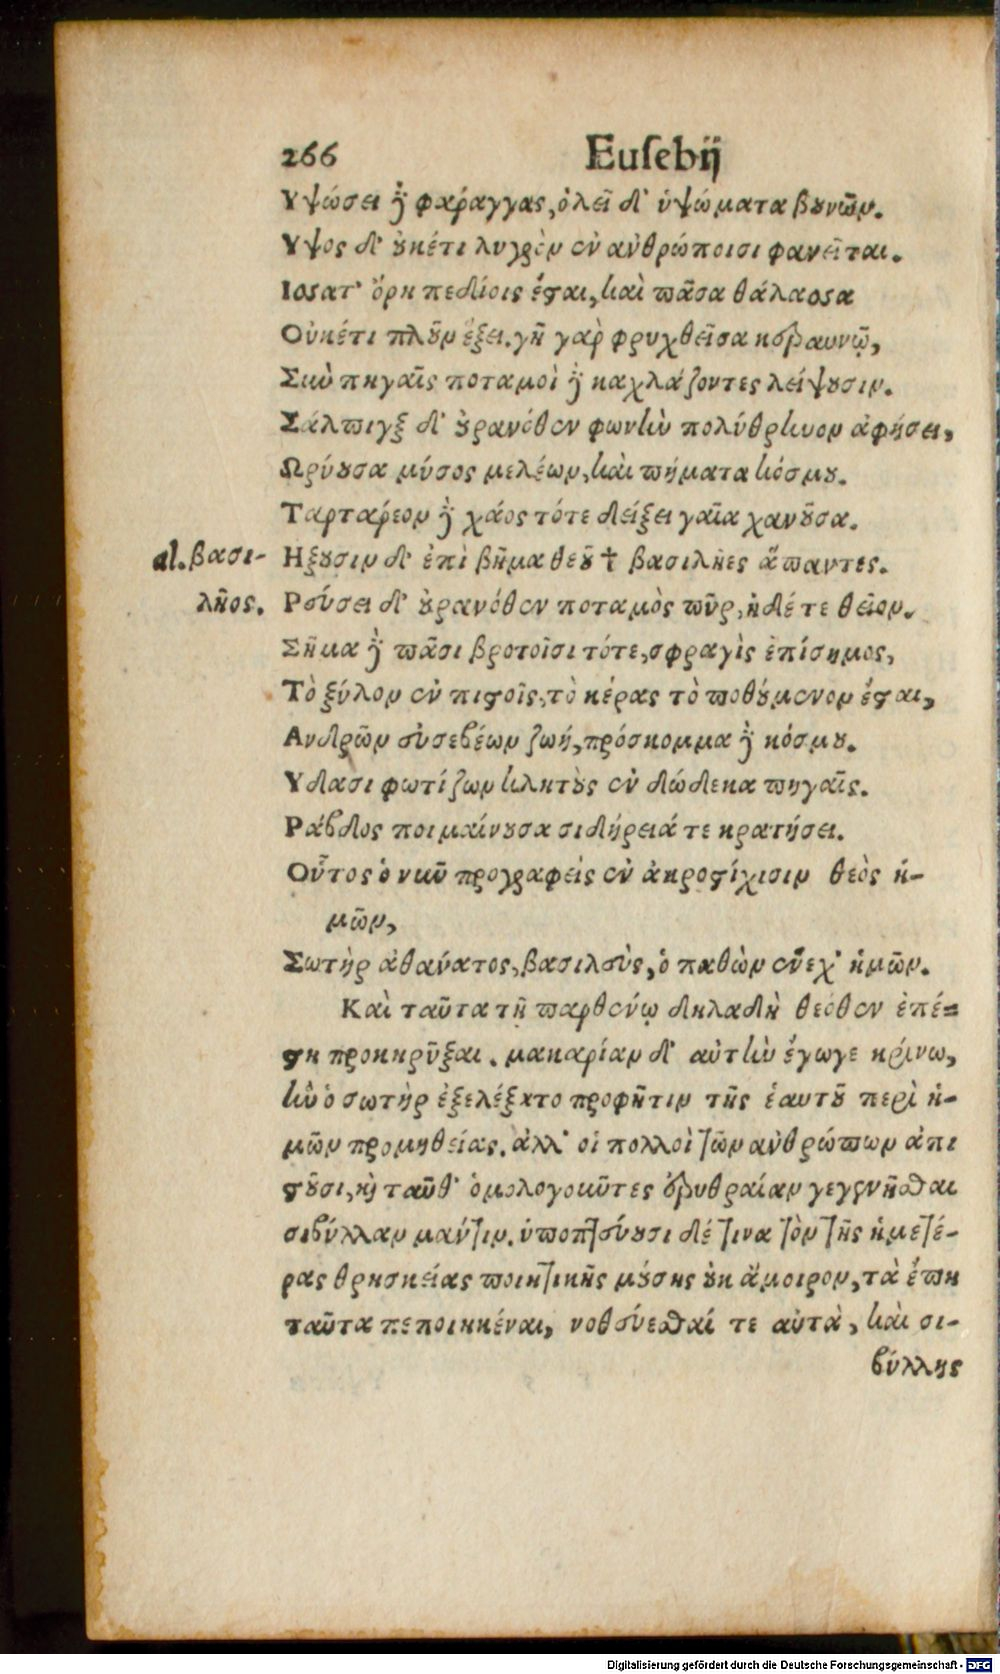 266 Eusebij
Υψώσει δὲ φάραγγας, ὀλεῖ δ' ὑψώματα βουνῶν.
Υψος δ' οὐκέτι λυγρὸν ἐν ἀνθρώποισι φανεῖται.
Ισατ' ὄρη πεδίοις ἔσται, καὶ πᾶσα θάλασσα
Οὐκέτι πλοῦν ἕξει. γῆ γὰρ φρυχθεῖσα κεραυνῷ,
Σὺν πηγαῖς ποταμοὶ δὲ καχλάζοντες λείψουσιν.
Σάλπιγξ δ' οὐρανόθεν φωνὴν πολύθρηνον ἀφήσει,
Ωρύουσα μύσος μελέων, καὶ πήματα κόσμου.
Ταρταρέον δὲ χάος τότε δείξει γαῖα χανοῦσα.
Ηξουσιν δ' ἐπὶ βῆμα θεοῦ † βασιλῆες ἅπαντες.
al. βασι-
λῆος.
Ρεύσει δ' οὐρανόθεν ποταμὸς πῦρ, ἠδέ τε θεῖον.
Σῆμα δὲ πᾶσι βροτοῖσι τότε, σφραγὶς ἐπίσημος,
Τὸ ξύλον ἐν πιστοῖς, τὸ κέρας τὸ ποθούμενον ἔσται,
Ανδρῶν εὐσεβέων ζωή, πρόσκομμα δὲ κόσμου.
Υδασι φωτίζων κλητοὺς ἐν δώδεκα πηγαῖς.
Ράβδος ποιμαίνουσα σιδήρειά τε κρατήσει.
Οὗτος ὁ νῦν προγραφεὶς ἐν ἀκροστίχισιν θεὸς ἡ-
μῶν,
Σωτὴρ ἀθανάτος, βασιλεὺς, ὁ παθὼν ἕνεχ' ἡμῶν.
Καὶ ταῦτα τῇ παρθένῳ δηλαδὴ θεόθεν ἐπέ-
στη προκηρῦξαι. μακαρίαν δ' αὐτὴν ἔγωγε κρίνω,
ἣν ὁ σωτὴρ ἐξελέξατο προφῆτιν τῆς ἑαυτοῦ περὶ ἡ-
μῶν προμηθείας. ἀλλ' οἱ πολλοὶ τῶν ἀνθρώπων ἀπι
στοῦσι, καὶ ταῦθ' ὁμολογοῦντες ἐρυθραίαν γεγενῆσθαι
σιβύλλαν μάντιν. ὑποπτεύουσι δέ τινα τὸν τῆς ἡμετέ-
ρας θρησκείας ποιητικῆς μούσης οὐκ ἄμοιρον, τὰ ἔπη
ταῦτα πεποιηκέναι, νοθεύεσθαί τε αὐτὰ, καὶ σι-
βύλλης
Digitalisierung gefördert durch die Deutsche Forschungsgemeinschaft - DFG